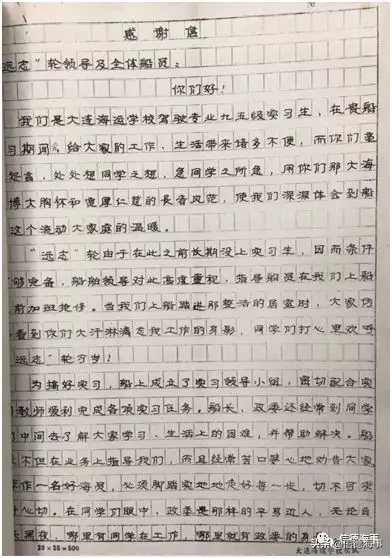 感谢信
远志”轮领导及全体船员：
你们好！
我们是大连海运学校驾驶专业九五级实习生，在贵船
习期间，给大家的工作、生活带来诸多不便，而你们毫
怨言，处处想同学之想，急同学之所急，用你们那大海
博大胸怀和宽厚仁慈的长者风范，使我们深深体会到船
这个流动大家庭的温暖。
“远志”轮由于在此之前长期没上实习生，因而条件
够完备，船舶领导对此高度重视，指导船员在我们上船
前加班抢修。当我们上船踏进那整洁的居室时，大家仿
看到你们大汗淋漓忘我工作的身影，同学们打心里欢呼
远志”轮万岁！
为搞好实习，船上成立了实习领导小组，密切配合实
教师顺利完成各项实习任务。船长、政委还经常到同学
中间去了解大家学习、生活上的困难，并帮助解决。船
不但在业务上指导我们，而且经常苦口婆心地劝告大家
作一名好海员，必须脚踏实地地走好每一步，切不可求
心切。在同学们眼中，政委是那样的平易近人，无论白
黑夜，哪里有同学在工作，哪里就有政委的身
20×25=500
大连海运学校
信德海事
头条@信德海事